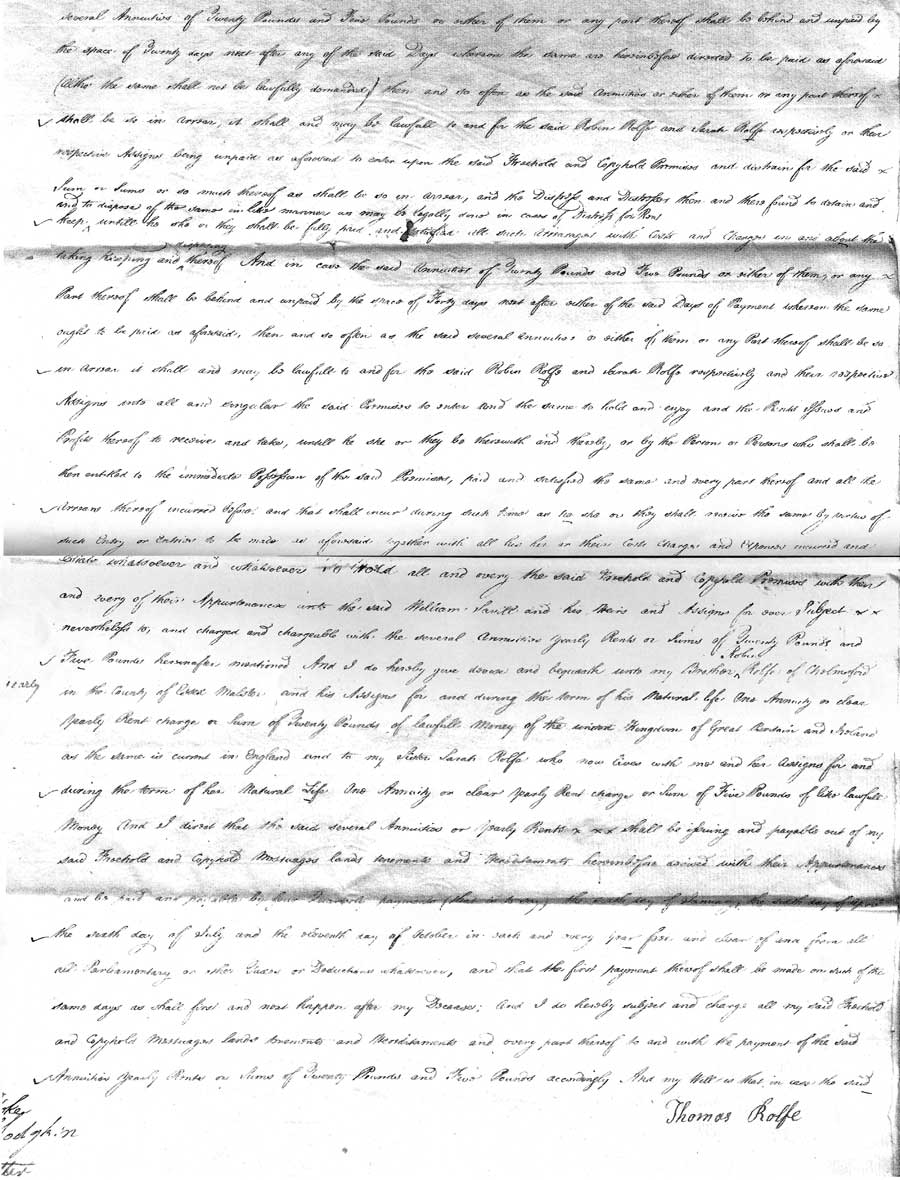 several Annuities of Twenty Pounds and Five Pounds or either of them or any part thereof shall be behind and unpaid by
the space of Twenty days next after any of the said Days whereon the same are hereinbefore directed to be paid as aforesaid
(altho the same shall not be lawfully demanded) then and so often as the said Annuities or either of them or any part thereof x
shall be so in arrear, it shall and may be lawfull to and for the said Robin Rolfe and Sarah Rolfe respectively or their
respective Assigns being unpaid as aforesaid to enter upon the said Freehold and Copyhold Premises and distrain for the said x
Sum or Sums or so much thereof as shall be so in arrear, and the Distress and Distresses then and there found to detain and
and to dispose of the same in like manner as may be legally done in cases of Distress for Rent
keep untill he she or they shall be fully paid and satisfied all such Arrearages with Costs and Charges in and about the
disposing
taking keeping and thereof And in case the said Annuities of Twenty Pounds and Five Pounds or either of them, or any x
Part thereof shall be behind and unpaid by the space of Forty days next after either of the said Days of Payment whereon the same
ought to be paid as aforesaid, then and so often as the said several annuities or either of them or any Part thereof shall be so
in arrear it shall and may be lawfull to and for the said Robin Rolfe and Sarah Rolfe respectively and their respective
Assigns into all and singular the said Premises to enter and the same to hold and enjoy and the Rents Issues and
Profits thereof to receive and take, untill he she or they be therewith and thereby, or by the Person or Persons who shall be
then entitled to the immediate Possession of the said Premises, paid and satisfied the same and every part thereof and all the
arrears thereof incurred before, and that shall incur during such time as he she or they shall receive the same by virtue of
such Entry or Entries to be made as aforesaid together with all his her or their Costs Charges and Expences incurred and
Estate whatsoever and whatsoever To Hold all and every the said Freehold and Copyhold Premises with their
and every of their Appurtenances unto the said William Savill and his Heirs and Assigns for ever Subject x x
nevertheless to, and charged and chargeable with the several Annuities yearly Rents or Sums of Twenty Pounds and
Robin
Five Pounds hereinafter mentioned And I do hereby give devise and bequeath unto my Brother Rolfe of Chelmsford
yearly
in the County of Essex Malster and his Assigns for and during the term of his Natural life One Annuity or clear
yearly Rent charge or Sum of Twenty Pounds of lawfull Money of the united Kingdom of Great Britain and Ireland
as the same is current in England and to my Sister Sarah Rolfe who now lives with me and her assigns for and
during the term of her Natural Life One Annuity or clear yearly Rent charge or Sum of Five Pounds of like lawfull
Money And I direct that the said several Annuities or yearly Rents x x x shall be issuing and payable out of my
said Freehold and Copyhold Messuages lands tenements and Hereditaments hereinbefore devised with their Appurtenances
and be paid and payable by four Quarterly payments (that is to say) the sixth day of January, the sixth day of April
the sixth day of July and the eleventh day of October in each and every year free and clear of and from all
all Parliamentary or other Taxes or Deductions whatsoever, and that the first payment thereof shall be made on such of the
same days as shall first and next happen after my Decease; And I do hereby subject and charge all my said Freehold
and Copyhold Messuages lands tenements and Hereditaments and every part thereof to and with the payment of the said
Annuities yearly Rents or Sums of Twenty Pounds and Five Pounds accordingly And my Will is that in case the said
Thomas Rolfe
odgkin